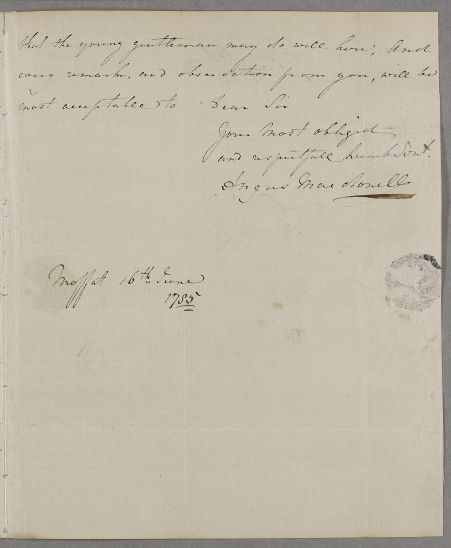 that the young gentleman may do well here; And
every remark, and observation from you, will be
most acceptable to Dear Sir
Your Most obliged
and respectfull humble Svt.
Angus Macdonell
Moffat 16th June
1785